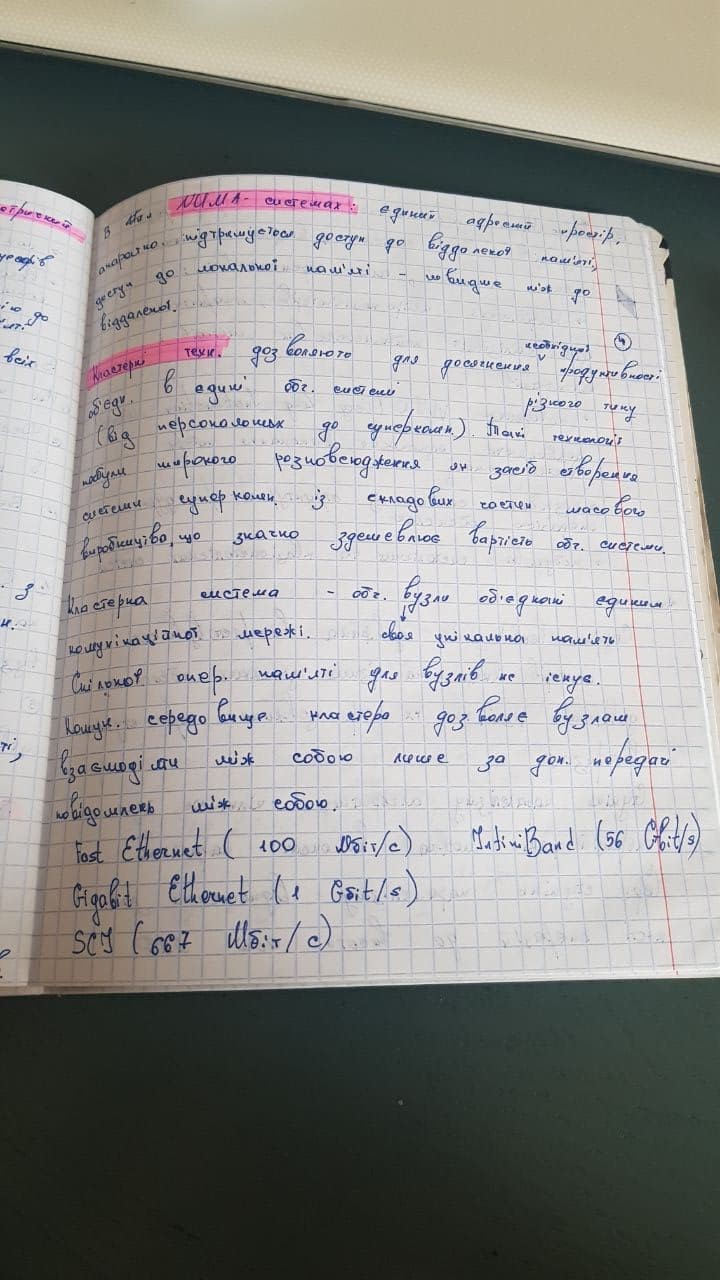 отрисний
до
всіх
з
В NUMA-системах: єдиний адресний простір,
апаратно підтримується доступ до віддаленої пам'яті,
доступ до локальної пам'яті - швидше ніж до
віддаленої.
4
необхідної
Кластерні техн. дозволяють для досягнення продуктивності
об'єдн. в єдині обч. системі різного типу
(від персональних до суперкомп.). Такі технології
набули широкого розповсюдження як засіб створення
системи суперкомп. із складових частин масового
виробництво, що значно здешевлює вартість обч. системи.
Кластерна система - обч. вузли об'єднані єдиним
комунікаційної мережі. своя унікальна пам'ять
Спільної опер. пам'яті для вузлів не існує.
Комун. середовище кластера дозволяє вузлам
взаємодіяти між собою лише за доп. передачі
повідомлень між собою.
Fast Ethernet (100 Мбіт/с) InfiniBand (56 Gbit/s)
Gigabit Ethernet (1 Gbit/s)
SCI (667 Мбіт/с)